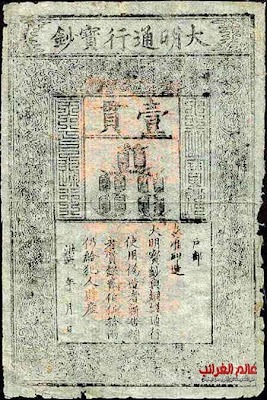 大明通行寶鈔
壹貫
戶部
奏准印造
大明寶鈔與銅錢通行
使用偽造者斬告捕
者賞銀貳伯伍拾兩
仍給犯人財產
洪武 年 月 日
عالم الغرائب